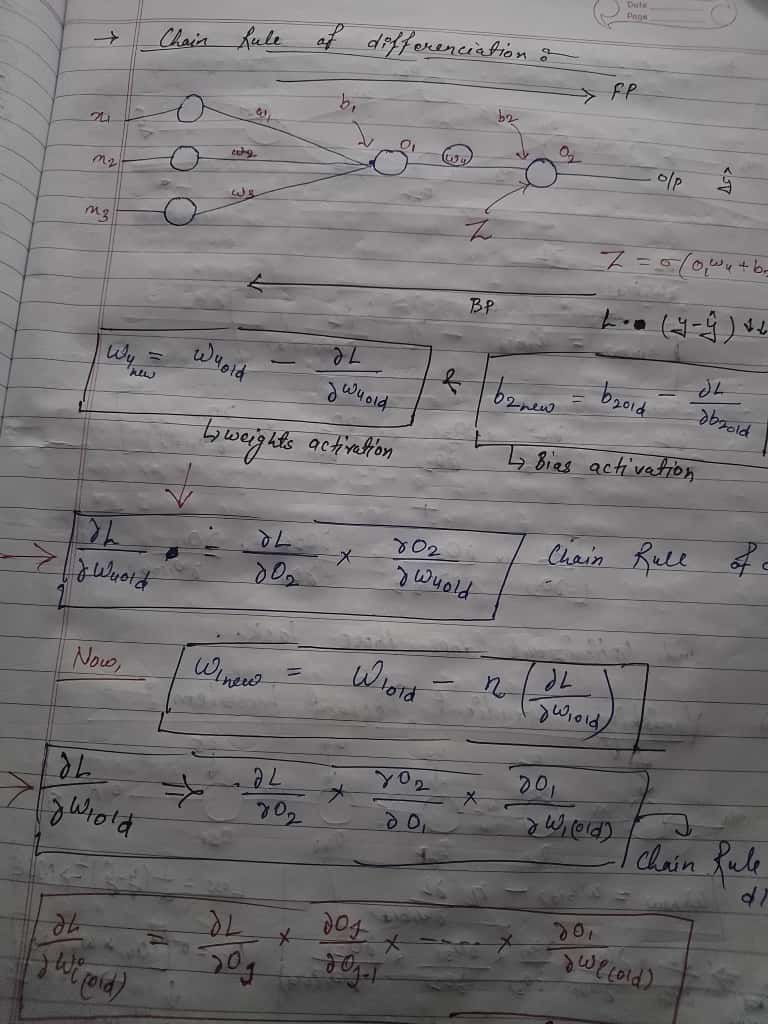 Date
Page
→ Chain Rule of differenciation :-
→ FP
x1 w1 b1 b2
O1 w4 O2
x2 w2 o/p ŷ
x3 w3 Z
Z = σ(O1w4 + b2
← BP
L. (y-ŷ) ↓↓
w4new = w4old - ∂L/∂w4old & b2new = b2old - ∂L/∂b2old
↳ weights activation ↳ Bias activation
∂L/∂w4old = ∂L/∂O2 × ∂O2/∂w4old Chain Rule of
Now, w1new = w1old - n(∂L/∂w1old)
∂L/∂w1old ⇒ ∂L/∂O2 × ∂O2/∂O1 × ∂O1/∂w1(old)
Chain Rule
∂L/∂wi(old) = ∂L/∂Oj × ∂Oj/∂Oj-1 × ----- × ∂O1/∂wi(old)